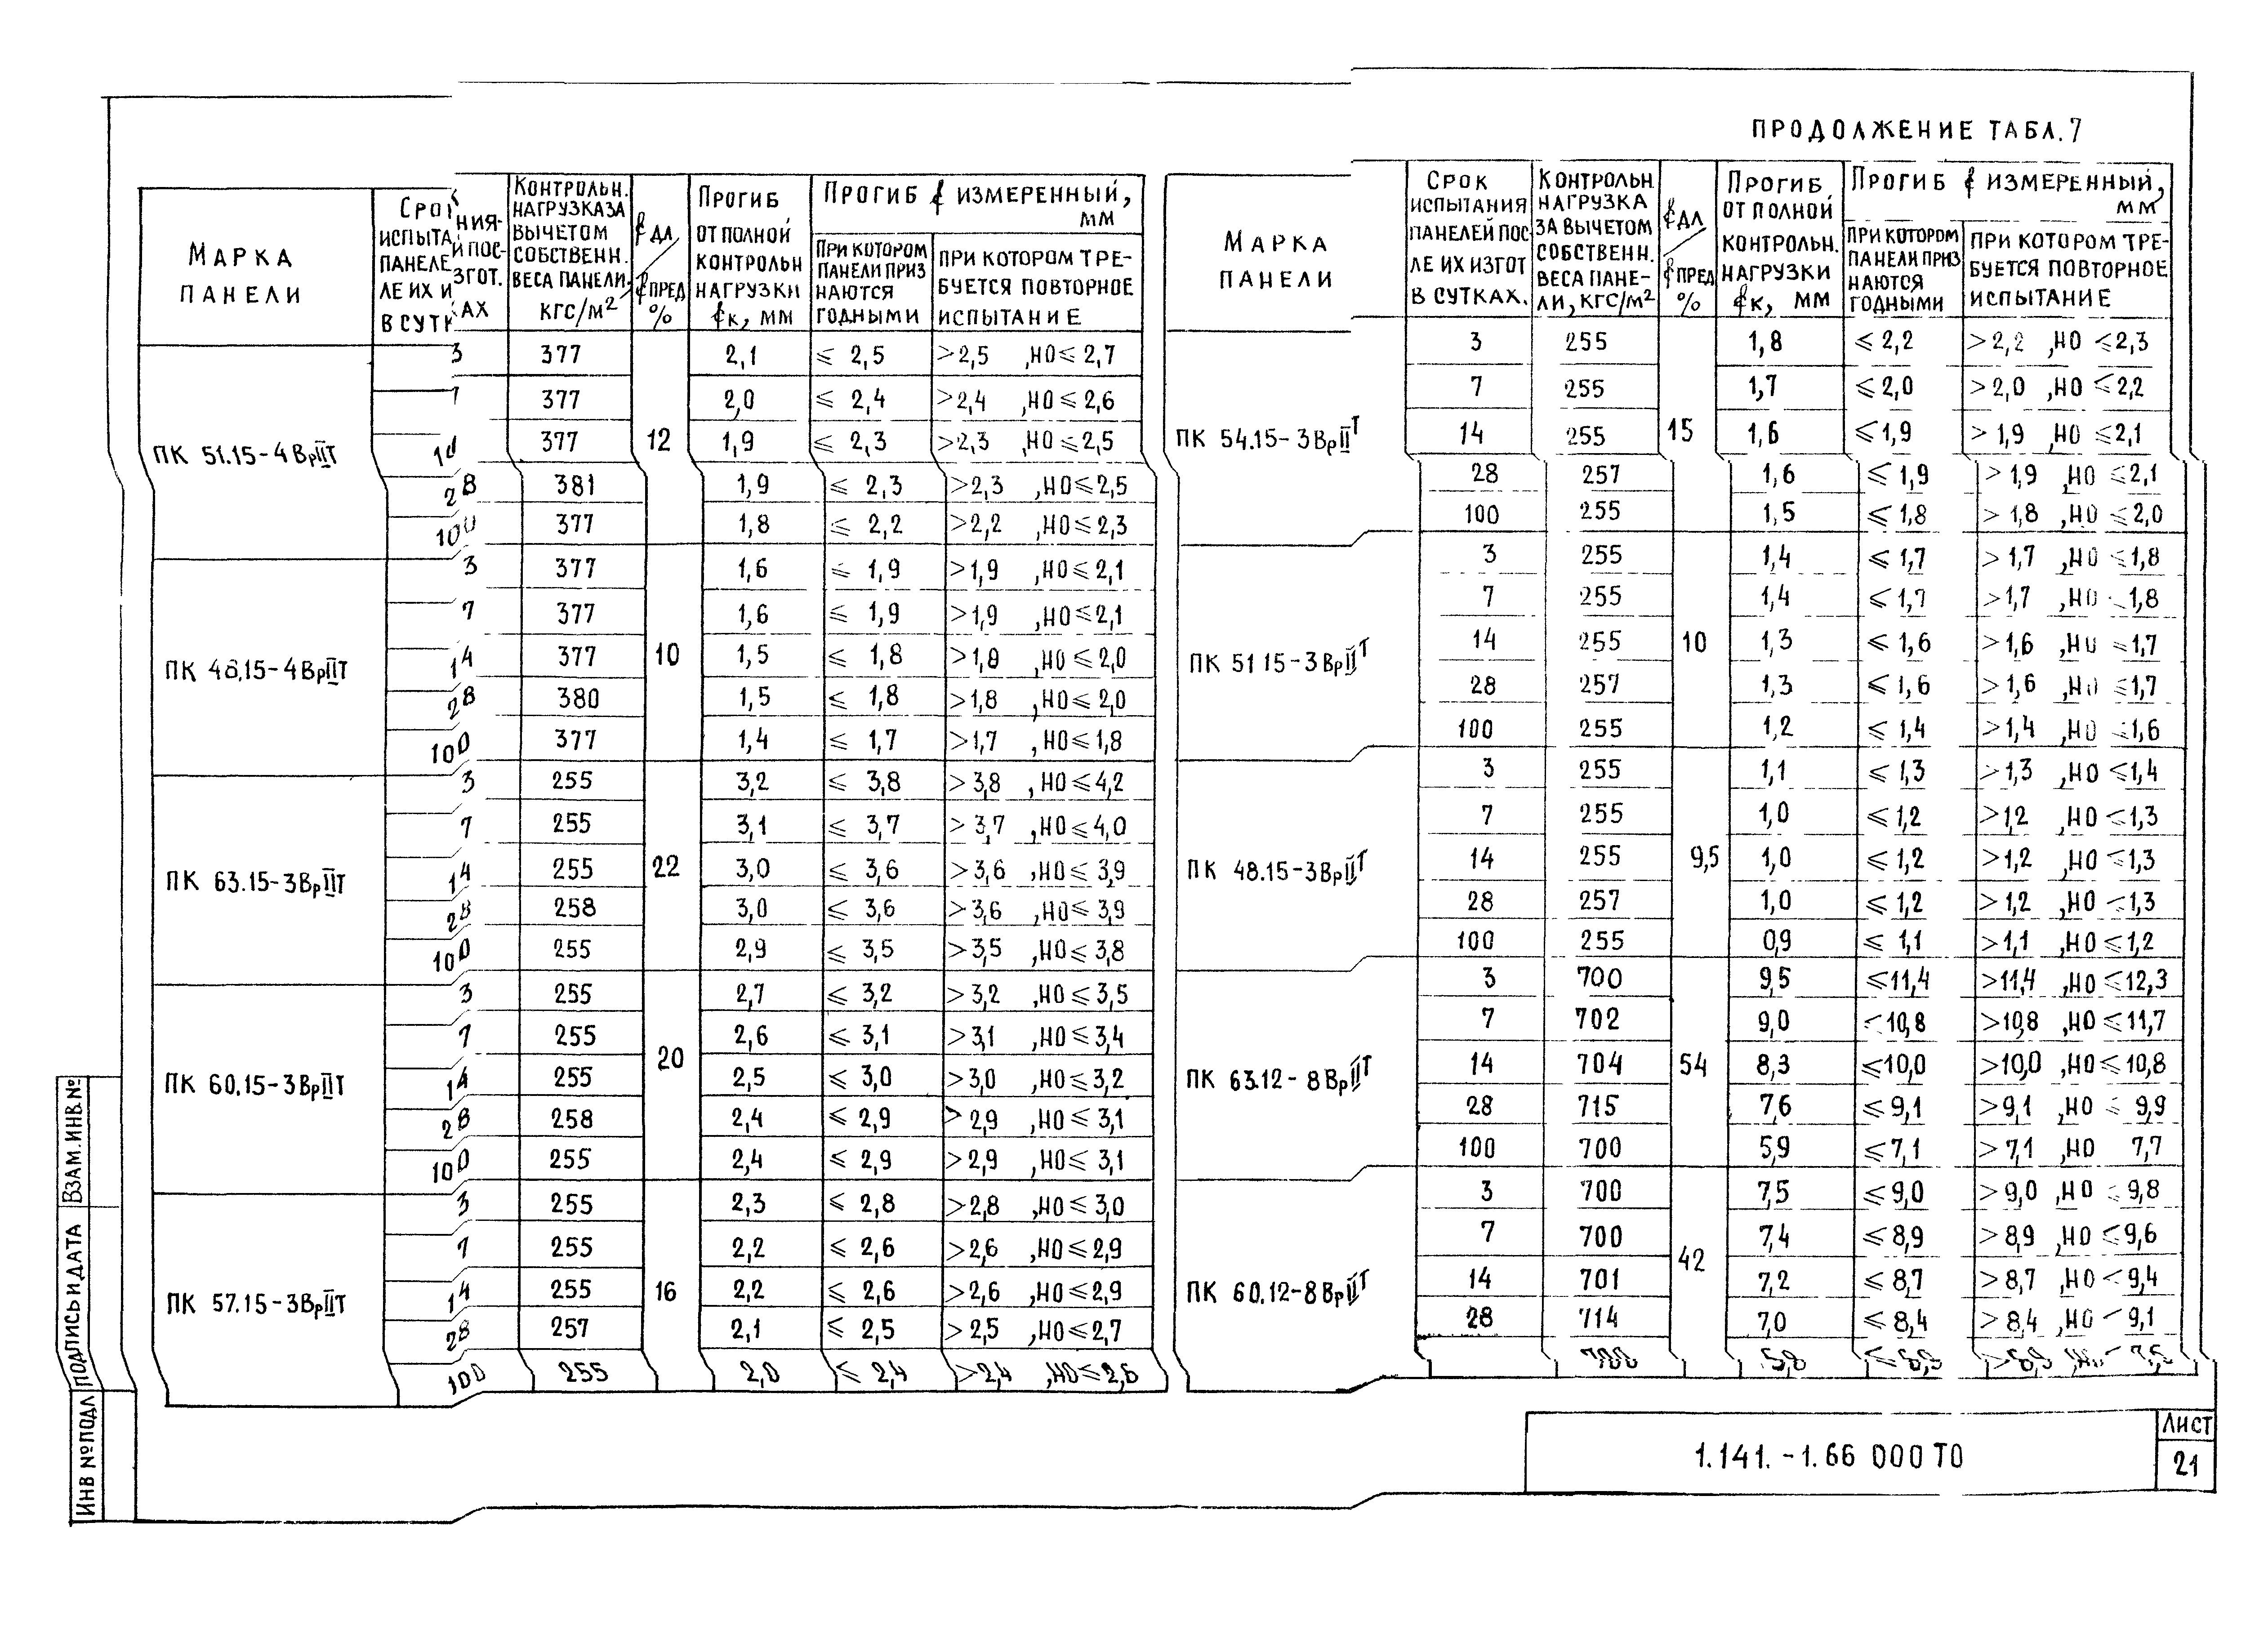 ПРОДОЛЖЕНИЕ ТАБЛ. 7
МАРКА ПАНЕЛИ
СРОК ИСПЫТАНИЯ ПАНЕЛЕЙ ПОСЛЕ ИХ ИЗГОТ. В СУТКАХ
КОНТРОЛЬН. НАГРУЗКА ЗА ВЫЧЕТОМ СОБСТВЕНН. ВЕСА ПАНЕЛИ, КГС/М2
f ДЛ / f ПРЕД %
ПРОГИБ ОТ ПОЛНОЙ КОНТРОЛЬН НАГРУЗКИ fК, ММ
ПРОГИБ f ИЗМЕРЕННЫЙ, ММ
ПРИ КОТОРОМ ПАНЕЛИ ПРИЗНАЮТСЯ ГОДНЫМИ
ПРИ КОТОРОМ ТРЕБУЕТСЯ ПОВТОРНОЕ ИСПЫТАНИЕ
ПК 51.15-4ВрIIТ
12
3 377 2,1 ≤ 2,5 >2,5 ,НО ≤ 2,7
7 377 2,0 ≤ 2,4 >2,4 ,НО ≤ 2,6
14 377 1,9 ≤ 2,3 >2,3 ,НО ≤ 2,5
28 381 1,9 ≤ 2,3 >2,3 ,НО ≤ 2,5
100 377 1,8 ≤ 2,2 >2,2 ,НО ≤ 2,3
ПК 48.15-4ВрIIТ
10
3 377 1,6 ≤ 1,9 >1,9 ,НО ≤ 2,1
7 377 1,6 ≤ 1,9 >1,9 ,НО ≤ 2,1
14 377 1,5 ≤ 1,8 >1,8 ,НО ≤ 2,0
28 380 1,5 ≤ 1,8 >1,8 ,НО ≤ 2,0
100 377 1,4 ≤ 1,7 >1,7 ,НО ≤ 1,8
ПК 63.15-3ВрIIТ
22
3 255 3,2 ≤ 3,8 >3,8 ,НО ≤ 4,2
7 255 3,1 ≤ 3,7 >3,7 ,НО ≤ 4,0
14 255 3,0 ≤ 3,6 >3,6 ,НО ≤ 3,9
28 258 3,0 ≤ 3,6 >3,6 ,НО ≤ 3,9
100 255 2,9 ≤ 3,5 >3,5 ,НО ≤ 3,8
ПК 60.15-3ВрIIТ
20
3 255 2,7 ≤ 3,2 >3,2 ,НО ≤ 3,5
7 255 2,6 ≤ 3,1 >3,1 ,НО ≤ 3,4
14 255 2,5 ≤ 3,0 >3,0 ,НО ≤ 3,2
28 258 2,4 ≤ 2,9 >2,9 ,НО ≤ 3,1
100 255 2,4 ≤ 2,9 >2,9 ,НО ≤ 3,1
ПК 57.15-3ВрIIТ
16
3 255 2,3 ≤ 2,8 >2,8 ,НО ≤ 3,0
7 255 2,2 ≤ 2,6 >2,6 ,НО ≤ 2,9
14 255 2,2 ≤ 2,6 >2,6 ,НО ≤ 2,9
28 257 2,1 ≤ 2,5 >2,5 ,НО ≤ 2,7
100 255 2,0 ≤ 2,4 >2,4 ,НО ≤ 2,6
МАРКА ПАНЕЛИ
СРОК ИСПЫТАНИЯ ПАНЕЛЕЙ ПОСЛЕ ИХ ИЗГОТ В СУТКАХ.
КОНТРОЛЬН. НАГРУЗКА ЗА ВЫЧЕТОМ СОБСТВЕНН. ВЕСА ПАНЕЛИ, КГС/М2
f ДЛ / f ПРЕД %
ПРОГИБ ОТ ПОЛНОЙ КОНТРОЛЬН. НАГРУЗКИ fК, ММ
ПРОГИБ f ИЗМЕРЕННЫЙ, ММ
ПРИ КОТОРОМ ПАНЕЛИ ПРИЗНАЮТСЯ ГОДНЫМИ
ПРИ КОТОРОМ ТРЕБУЕТСЯ ПОВТОРНОЕ ИСПЫТАНИЕ
ПК 54.15-3ВрIIТ
15
3 255 1,8 ≤ 2,2 >2,2 ,НО ≤ 2,3
7 255 1,7 ≤ 2,0 >2,0 ,НО ≤ 2,2
14 255 1,6 ≤ 1,9 >1,9 ,НО ≤ 2,1
28 257 1,6 ≤ 1,9 >1,9 ,НО ≤ 2,1
100 255 1,5 ≤ 1,8 >1,8 ,НО ≤ 2,0
ПК 51 15-3ВрIIТ
10
3 255 1,4 ≤ 1,7 >1,7 ,НО ≤ 1,8
7 255 1,4 ≤ 1,7 >1,7 ,НО ≤ 1,8
14 255 1,3 ≤ 1,6 >1,6 ,НО ≤ 1,7
28 257 1,3 ≤ 1,6 >1,6 ,НО ≤ 1,7
100 255 1,2 ≤ 1,4 >1,4 ,НО ≤ 1,6
ПК 48.15-3ВрIIТ
9,5
3 255 1,1 ≤ 1,3 >1,3 ,НО ≤ 1,4
7 255 1,0 ≤ 1,2 >1,2 ,НО ≤ 1,3
14 255 1,0 ≤ 1,2 >1,2 ,НО ≤ 1,3
28 257 1,0 ≤ 1,2 >1,2 ,НО ≤ 1,3
100 255 0,9 ≤ 1,1 >1,1 ,НО ≤ 1,2
ПК 63.12-8ВрIIТ
54
3 700 9,5 ≤ 11,4 >11,4 ,НО ≤ 12,3
7 702 9,0 ≤ 10,8 >10,8 ,НО ≤ 11,7
14 704 8,3 ≤ 10,0 >10,0 ,НО ≤ 10,8
28 715 7,6 ≤ 9,1 >9,1 ,НО ≤ 9,9
100 700 5,9 ≤ 7,1 >7,1 ,НО 7,7
ПК 60.12-8ВрIIТ
42
3 700 7,5 ≤ 9,0 >9,0 ,НО ≤ 9,8
7 700 7,4 ≤ 8,9 >8,9 ,НО ≤ 9,6
14 701 7,2 ≤ 8,7 >8,7 ,НО ≤ 9,4
28 714 7,0 ≤ 8,4 >8,4 ,НО ≤ 9,1
700
ВЗАМ. ИНВ.№
ПОДПИСЬ И ДАТА
ИНВ №ПОДЛ
1.141.-1.66 000 ТО
ЛИСТ
21